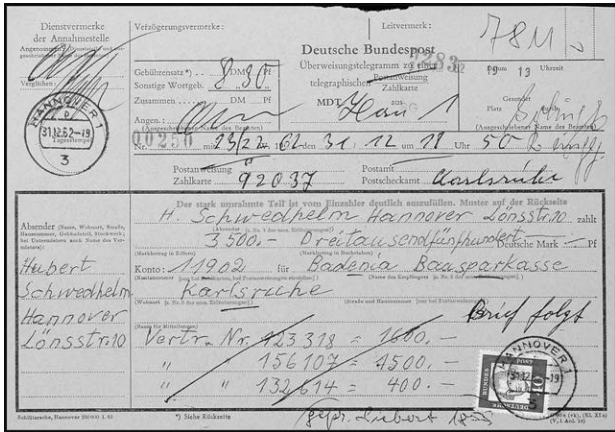 Dienstvermerke
der Annahmestelle
Verzögerungsvermerke:
Leitvermerk:
78M
Deutsche Bundespost
Überweisungstelegramm zu einer
telegraphischen Postanweisung
Zahlkarte
Gebührensatz*) DM Pf
8 30
Sonstige Wortgeb.
Zusammen DM Pf
Angen.:
(Ausgeschriebener Name des Beamten)
Verglichen:
MDT Han 1 aus
Datum Uhrzeit
19 13
Gesendet
Platz
(Ausgeschriebener Name des Beamten)
HANNOVER 1
31.12.62-19
3
00230
Nr. 23/22 W. 62 den 31/12 um 18 Uhr 50
Postanweisung
Zahlkarte 92037
Postamt
Postscheckamt Karlsruhe
Der stark umrahmte Teil ist vom Einzahler deutlich auszufüllen. Muster auf der Rückseite
Absender (Name, Wohnort, Straße,
Hausnummer, Gebäudeteil, Stockwerk;
bei Untermietern auch Name des Vermieters):
Hubert
Schwedhelm
Hannover
Lönsstr. 10
H. Schwedhelm Hannover Lönsstr. 10 zahlt
3500.- Dreitausendfünfhundert Deutsche Mark - Pf
Konto: 11902 für Badenia Bausparkasse
Karlsruhe
Brief folgt
Vertr. Nr. 123 318 = 1600.-
" " 156107 = 1500.-
" " 132614 = 400.-
HANNOVER 1
DEUTSCHE
BUNDESPOST
10
*) Siehe Rückseite